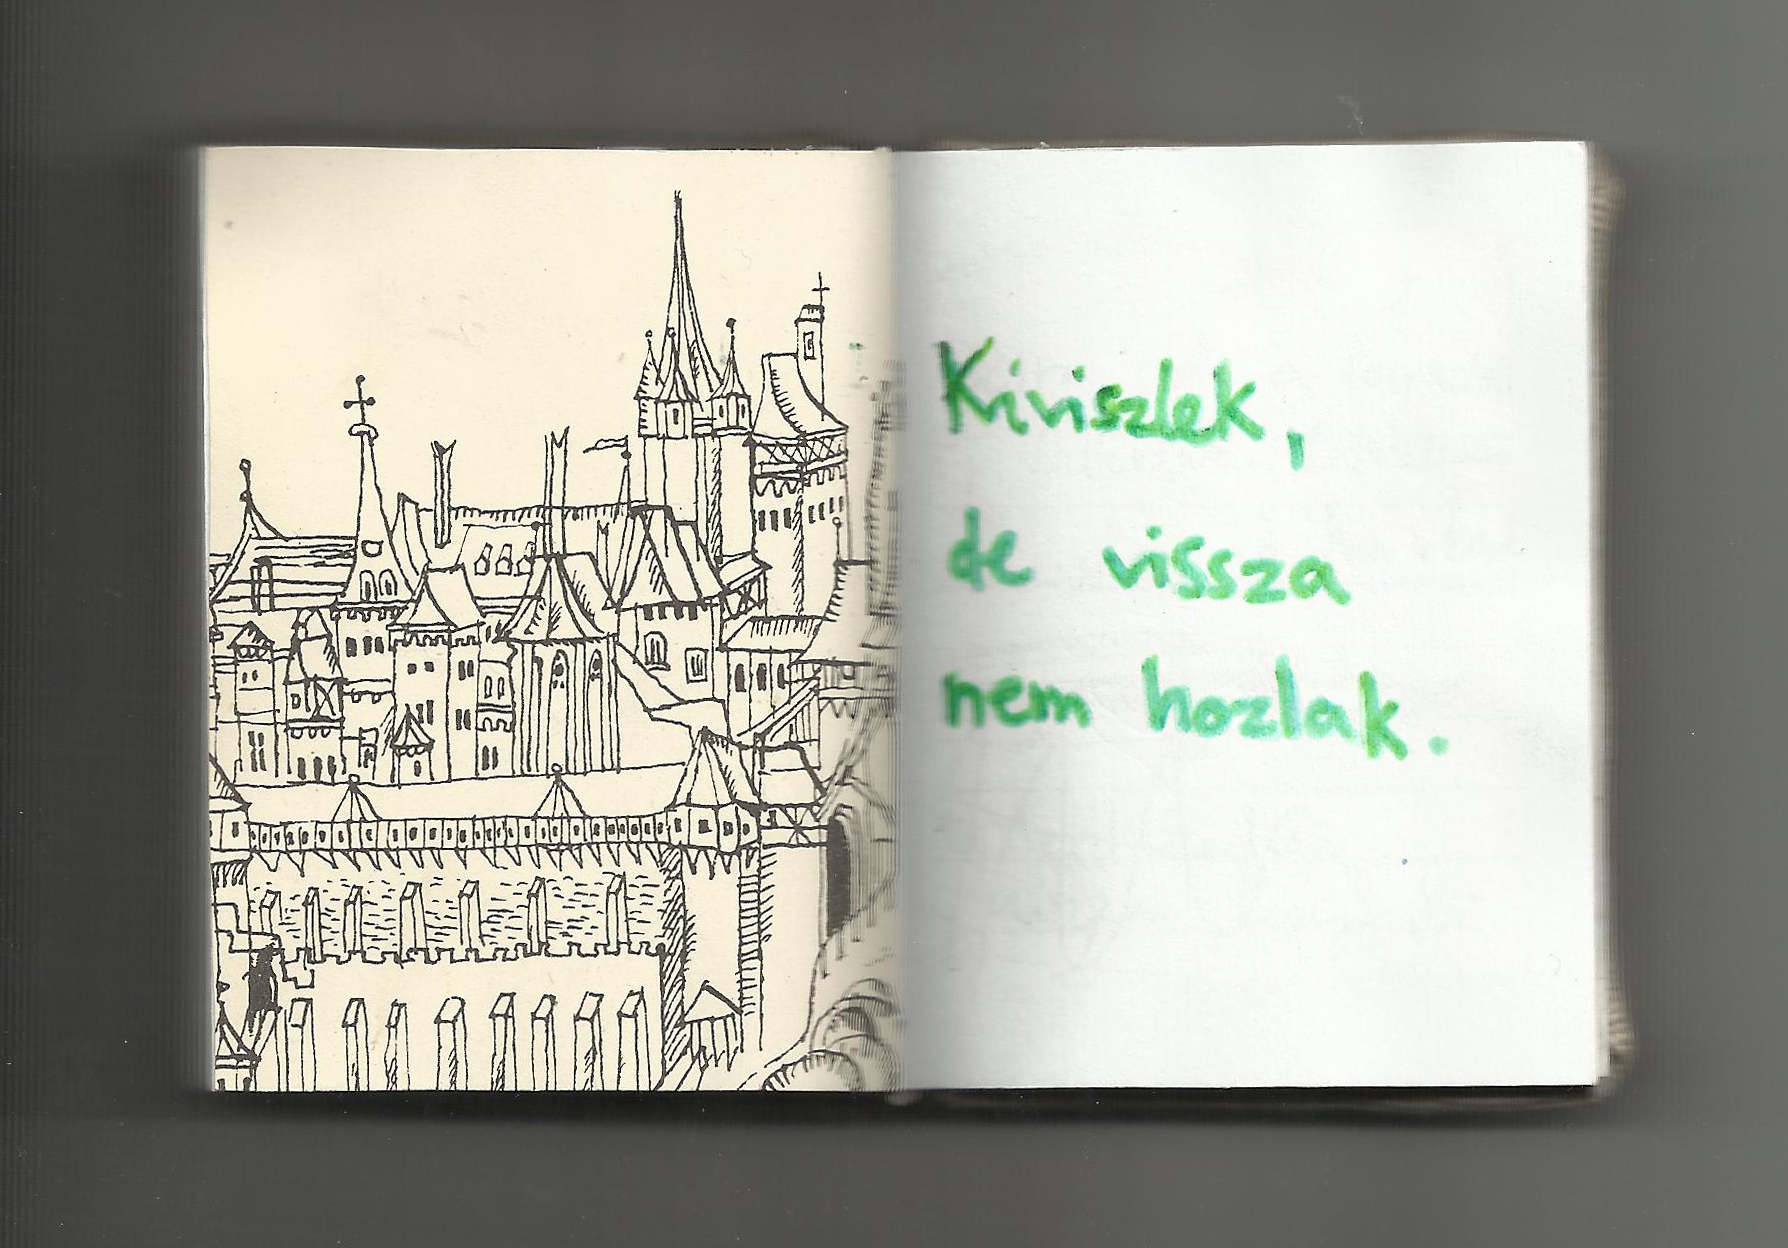 Kiviszlek,
de vissza
nem hozlak.